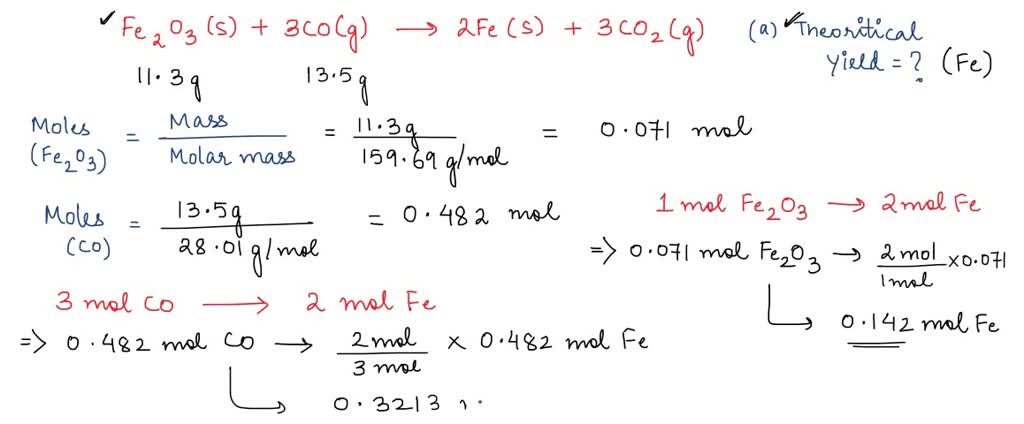 ✓ Fe₂O₃ (s) + 3CO(g) → 2Fe(s) + 3CO₂(g)
11.3g 13.5g
(a) ✓ Theoritical
yield = ? (Fe)
Moles (Fe₂O₃) = Mass / Molar mass = 11.3g / 159.69 g/mol = 0.071 mol
Moles (CO) = 13.5g / 28.01 g/mol = 0.482 mol
1 mol Fe₂O₃ → 2 mol Fe
=> 0.071 mol Fe₂O₃ → 2 mol / 1 mol × 0.071
0.142 mol Fe
3 mol CO → 2 mol Fe
=> 0.482 mol CO → 2 mol / 3 mol × 0.482 mol Fe
0.3213